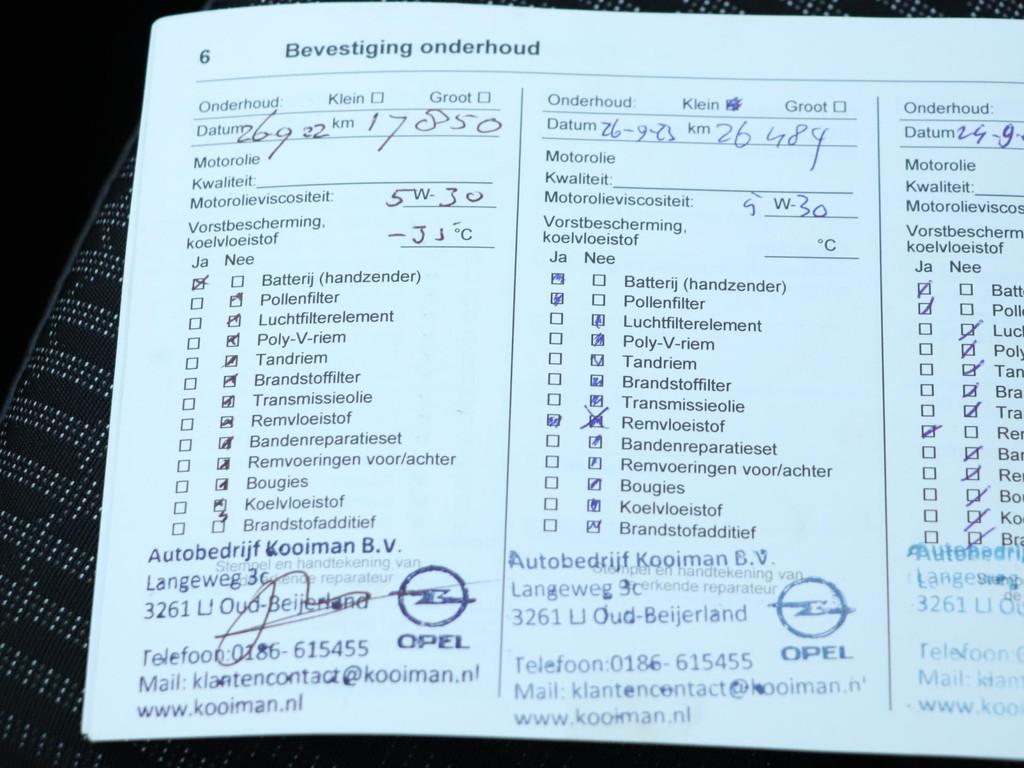 6 Bevestiging onderhoud
Onderhoud: Klein Groot
Datum 26 9 22 km 17850
Motorolie
Kwaliteit:
Motorolieviscositeit: 5 W- 30
Vorstbescherming,
koelvloeistof °C
Ja Nee
Batterij (handzender)
Pollenfilter
Luchtfilterelement
Poly-V-riem
Tandriem
Brandstoffilter
Transmissieolie
Remvloeistof
Bandenreparatieset
Remvoeringen voor/achter
Bougies
Koelvloeistof
Brandstofadditief
Stempel en handtekening van
erkende reparateur
Autobedrijf Kooiman B.V.
Langeweg 3c
3261 LJ Oud-Beijerland
OPEL
Telefoon:0186-615455
Mail: klantencontact@kooiman.nl
www.kooiman.nl
Onderhoud: Klein Groot
Datum 26-9-23 km 26484
Motorolie
Kwaliteit:
Motorolieviscositeit: 5 W-30
Vorstbescherming,
koelvloeistof °C
Ja Nee
Batterij (handzender)
Pollenfilter
Luchtfilterelement
Poly-V-riem
Tandriem
Brandstoffilter
Transmissieolie
Remvloeistof
Bandenreparatieset
Remvoeringen voor/achter
Bougies
Koelvloeistof
Brandstofadditief
Stempel en handtekening van
erkende reparateur
Autobedrijf Kooiman B.V.
Langeweg 3c
3261 LJ Oud-Beijerland
OPEL
Telefoon:0186-615455
Mail: klantencontact@kooiman.n
www.kooiman.nl
Onderhoud:
Datum 24-9-
Motorolie
Kwaliteit:
Motorolieviscos
Vorstbescherm
koelvloeistof
Ja Nee
Batt
Polle
Luch
Poly
Tan
Bra
Tra
Rem
Ban
Re
Bou
Ko
Bra
Autobedrij
Langew
3261 LJ
Telefoon
Mail: klan
www.koo